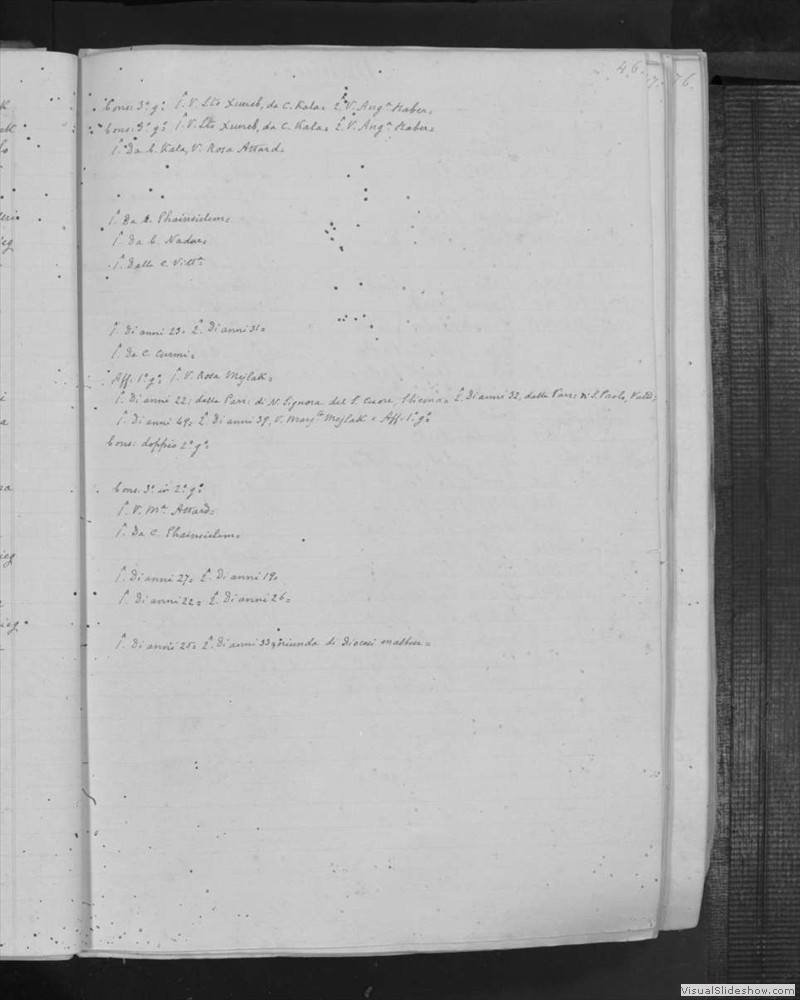 46.
7. 76.
Cons: 3º gº 1º V. Lto Xuereb, da C. Kala. 2º V. Angª Haber.
Cons: 3º gº 1º V. Lto Xuereb, da C. Kala. 2º V. Angª Haber.
1º Da C. Kala, V. Rosa Attard.
1º Da C. Ghainsielem.
1º Da C. Nadur.
1º Dalla C. Vittª
1º Di anni 23. 2º Di anni 31.
1º Da C. Curmi.
Aff. 1º gº 1º V. Rosa Mejlak.
1º Di anni 22: della Parr: di N. Signora del S. Cuore, Sliema. 2º Di anni 32, della Parr: di S. Paolo, Valtta
1º Di anni 49. 2º Di anni 39, V. Mejlak. Aff. 1º gº
Cons: doppio 2º gº
Cons: 3º in 2º gº
1º V. Mª Attard.
1º Da C. Ghainsielem.
1º Di anni 27. 2º Di anni 19.
1º Di anni 22. 2º Di anni 26.
1º Di anni 25. 2º Di anni 33, oriunda di Diocesi
VisualSlideshow.com